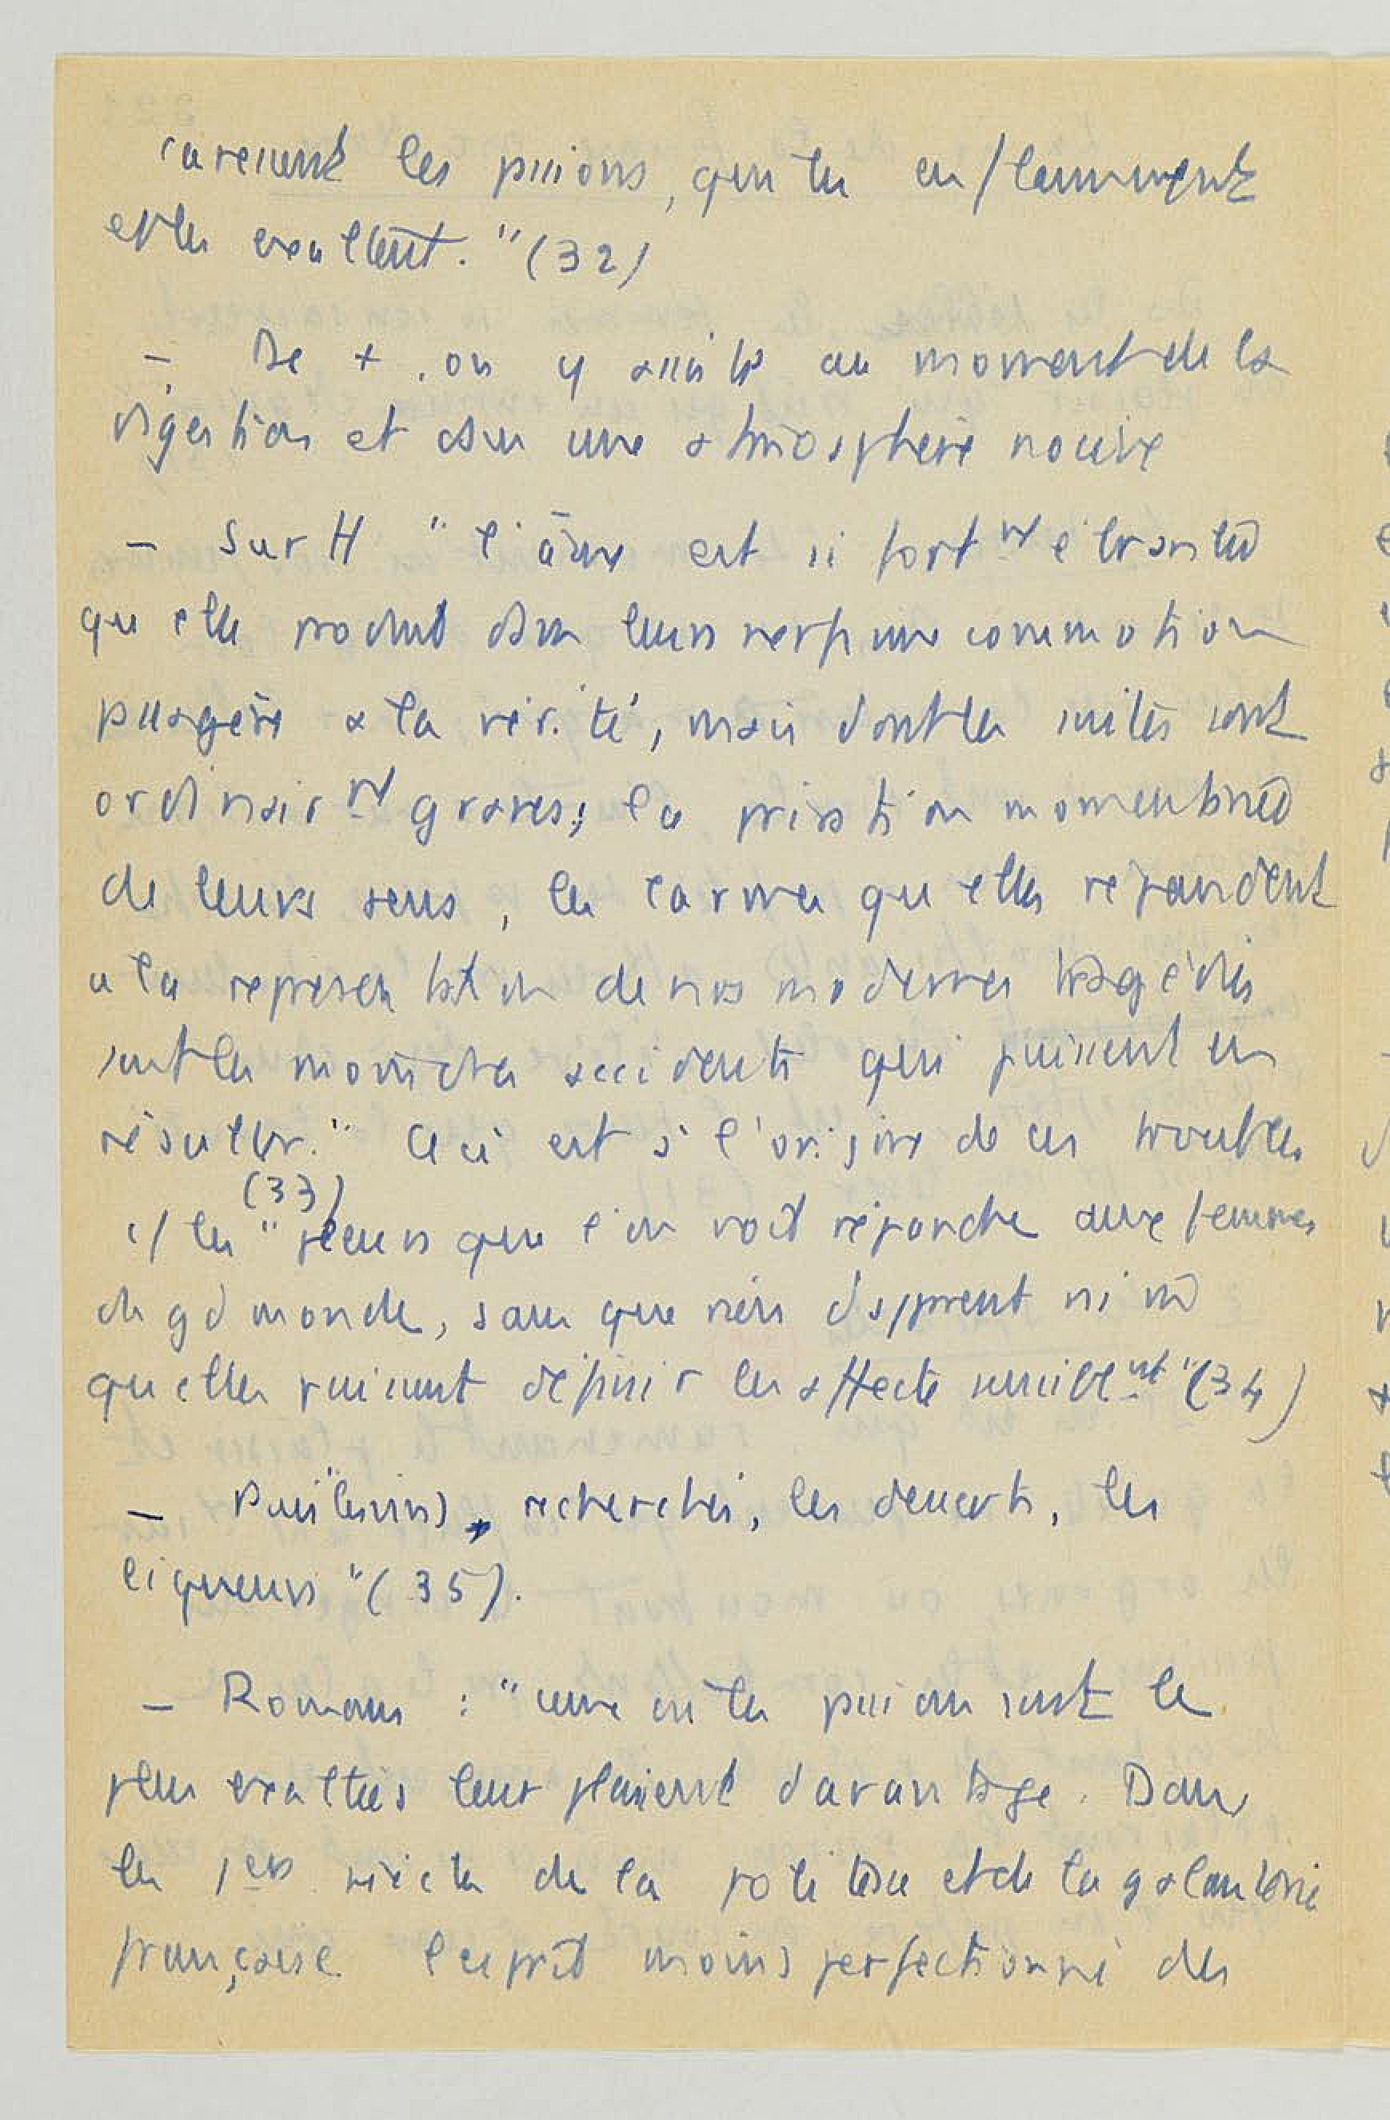 caressent les passions, qui les enflamment
et les exaltent." (32)
- De +, on y assiste au moment de la
digestion et dans une atmosphère nocive
- Sur H "l'âme est si fortnt ebranlée
qu'elle produit dans leurs nerfs une commotion
passagère a la vérité, mais dont les suites sont
ordinairnt graves; la privation momentanée
de leurs sens, les larmes qu'elles repandent
a la representation de nos modernes tragédies
sont les moindres accidents qui puissent en
résulter." Ceci est à l'origine de ces troubles
(33)
cf les "pleurs que l'on voit répandre aux femmes
du gd monde, sans que rien d'apparent ni mê
qu'elles puissent définir les affecte sensiblemnt" (34)
- Puis les vins recherchés, les desserts, les
liqueurs" (35).
- Romans : "ceux où les passions sont le
plus exaltées leur plaisent davantage. Dans
les 1ers siècles de la politesse et de la galanterie
française l'esprit moins perfectionné des